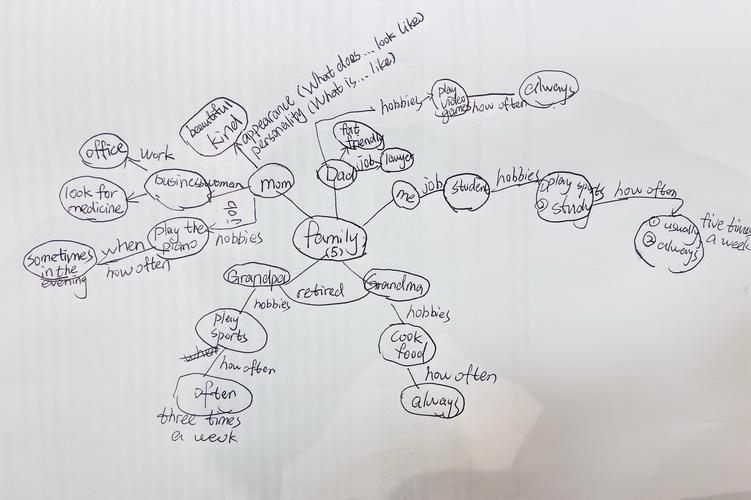 appearance (What does... look like)
personality (What is... like)
beautifull
kind
office
work
businesswoman
look for
medicine
mom
job
hobbies
play the
piano
when
how often
sometimes
in the
evening
Dad
fat
friendly
job
lawyer
hobbies
play
video
games
how often
always
me
job
student
hobbies
① play sports
② study
how often
① usually
② always
five times
a week
family
(5)
Grandpa
retired
Grandma
hobbies
play
sports
when
how often
often
three times
a week
hobbies
cook
food
how often
always